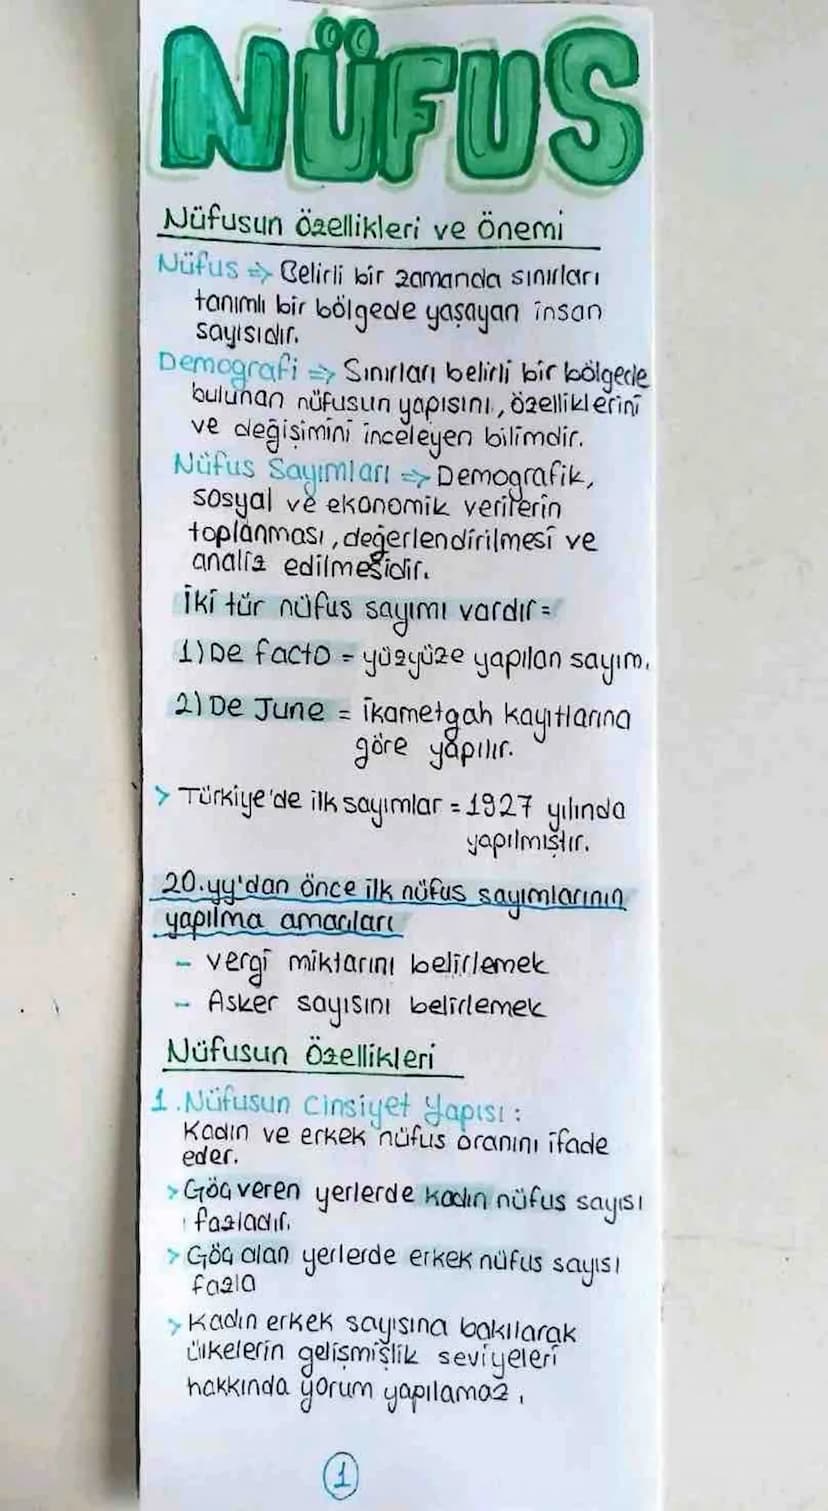 NÜFUS
Nüfusun Özellikleri ve Önemi
Nüfus => Belirli bir zamanda sınırları
tanımlı bir bölgede yaşayan insan
sayısıdır.
Demografi => Sınırları belirli bir bölgede
bulunan nüfusun yapısını, özelliklerini
ve değişimini inceleyen bilimdir.
Nüfus Sayımları => Demografik,
sosyal ve ekonomik verilerin
toplanması, değerlendirilmesi ve
analiz edilmesidir.
İki tür nüfus sayımı vardır =
1) De facto = yüzyüze yapılan sayım.
2) De June = ikametgah kayıtlarına
göre yapılır.
> Türkiye'de ilk sayımlar = 1927 yılında
yapılmıştır.
20.yy'dan önce ilk nüfus sayımlarının
yapılma amaçları
- vergi miktarını belirlemek
- Asker sayısını belirlemek
Nüfusun Özellikleri
1. Nüfusun Cinsiyet Yapısı:
Kadın ve erkek nüfus oranını ifade
eder.
> Göç veren yerlerde kadın nüfus sayısı
fazladır.
> Göç alan yerlerde erkek nüfus sayısı
fazla
> Kadın erkek sayısına bakılarak
ülkelerin gelişmişlik seviyeleri
hakkında yorum yapılamaz.
1